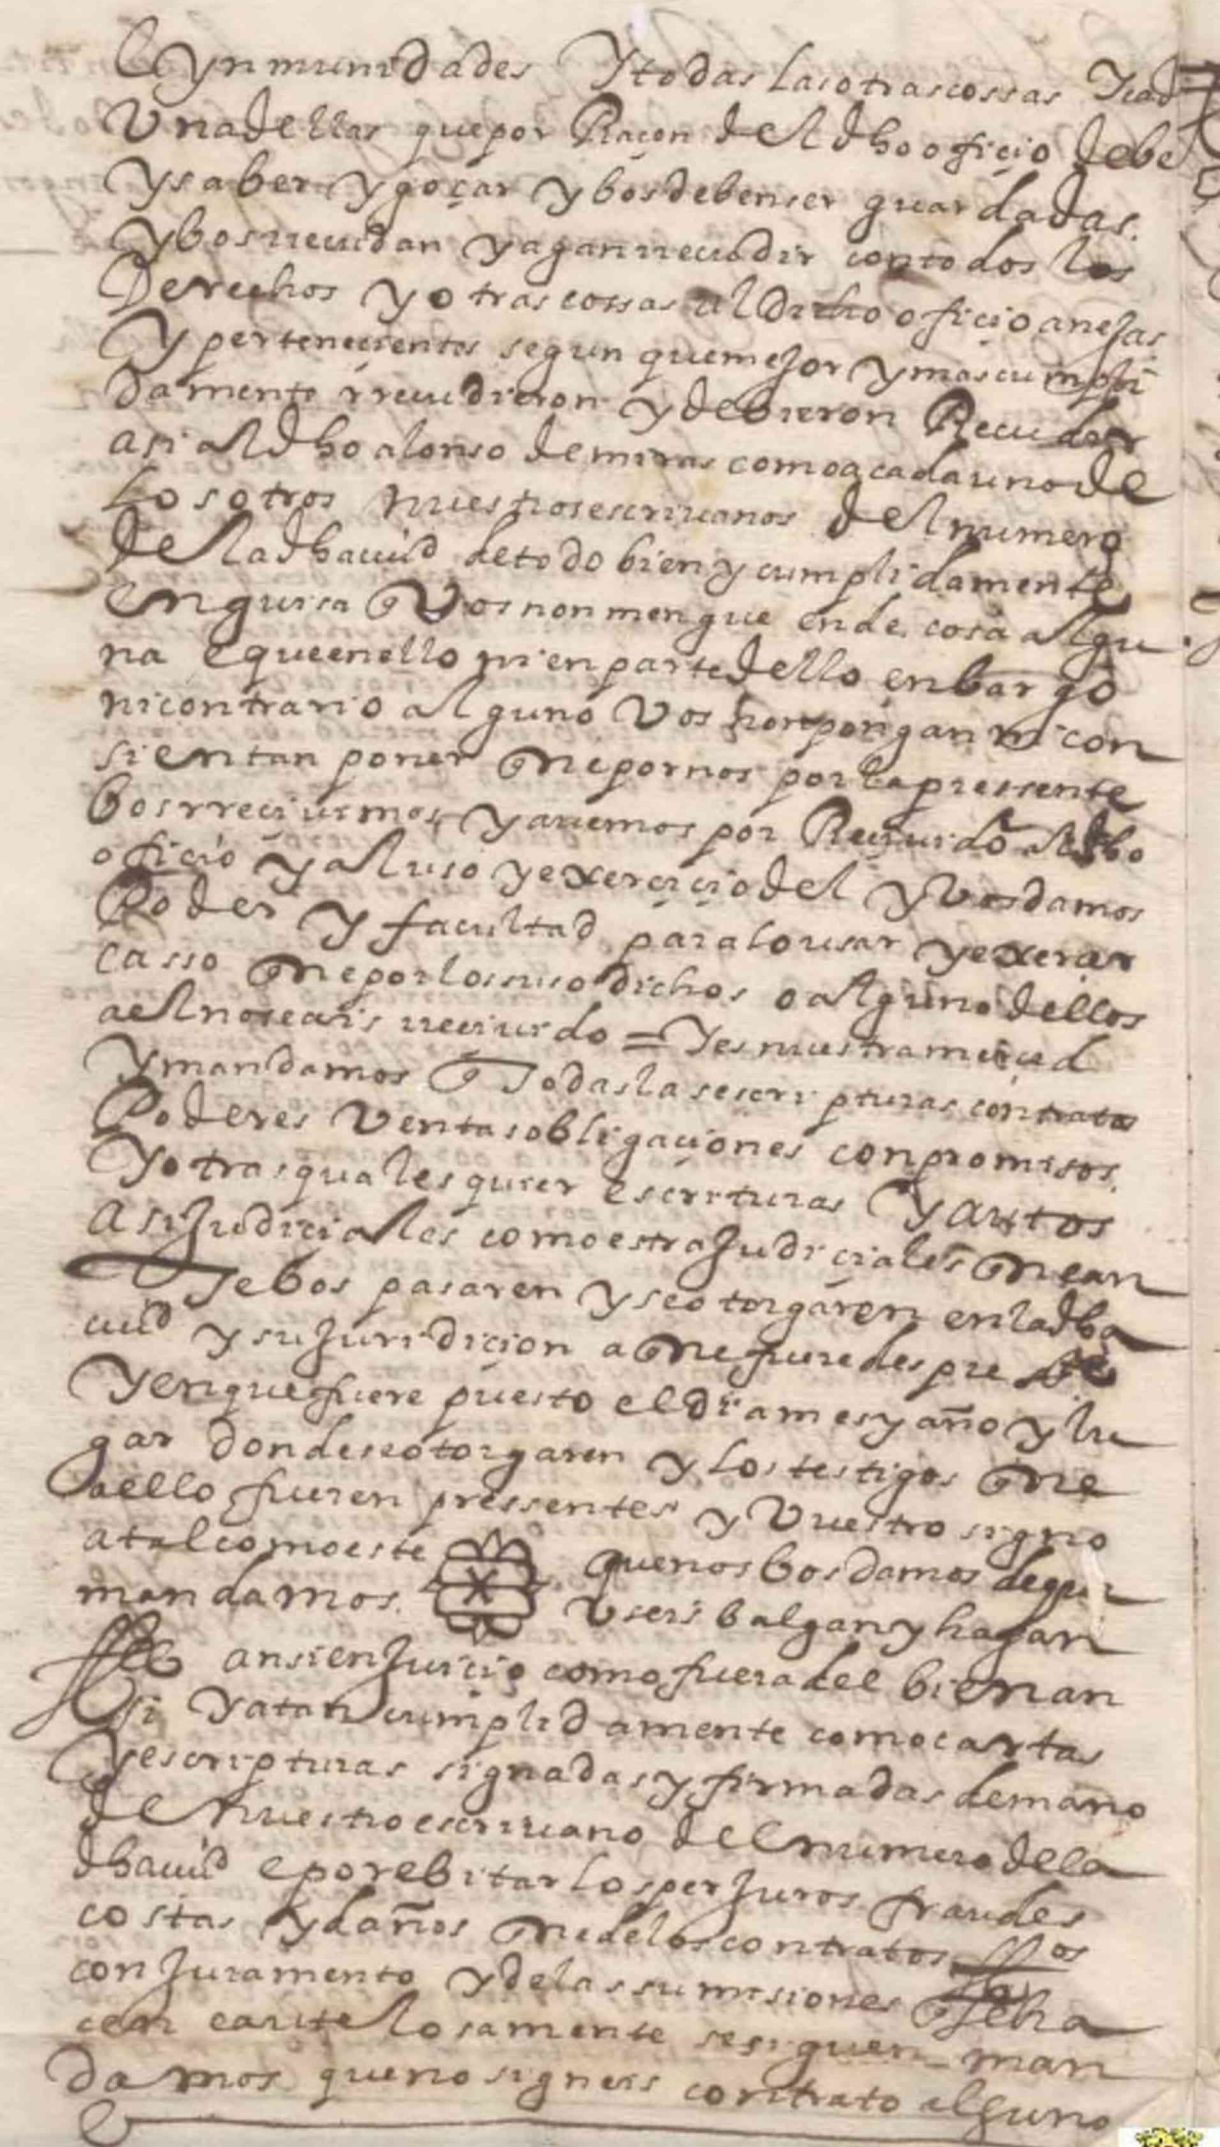 E ynmunidades Y todas las otras cossas Y cad
Una dellas que por Raçon del dho ofiçio debe
ys aber y goçar y bos deben ser guardadas.
y bos rrecudan y agan rrecudir con todos los
Derechos y otras cossas al dicho ofiçio anejas
Y pertenecientes segun que mejor y mas cumpli
damente rrecudieron y debieron Recudir
asi al dho alonso de miras como a cada uno de
Los otros nuestros escrivanos del numero
de la dha ciud de todo bien y cumplidamente
en guisa q Vos non mengue ende cosa algu
na e que en ello ni en parte dello enbargo
ni contrario alguno Vos non pongan ni con
sientan poner que nos por la pressente
bos rreciuimos y auemos por Reciuido al dho
ofiçio y al uso y exerçiçio del y Vos damos
Poder y facultad para lo usar y exercer
casso que por los suso dichos o alguno dellos
a el no seais reciuido = Y es nuestra merced
Y mandamos q Todas las escripturas contratos
Poderes Ventas obligaçiones conpromisos.
Y otras qualesquier escrituras Y autos
asi Judiciales como estrajudiciales que an
te bos pasaren y se otorgaren en la dha
ciud y su Juridicion a que fueredes presste
Y en que fuere puesto el dia mes y año y lu
gar donde se otorgaren y los testigos que
a ello fueren pressentes y Vuestro signo
atal como este quenos bos damos de que
mandamos. Useis balgan y hagan
ffee ansi en Juicio como fuera del bien an
si y a tan cumplidamente como cartas
Y escripturas signadas y firmadas de mano
de nuestro escrivano del numero de la
dha ciud e por ebitar los perjuros fraudes
costas y daños que de los contratos ffhos
con Juramento y de las sumisiones q se ha
cen cautelosamente se siguen man
damos que no signeis contrato alguno